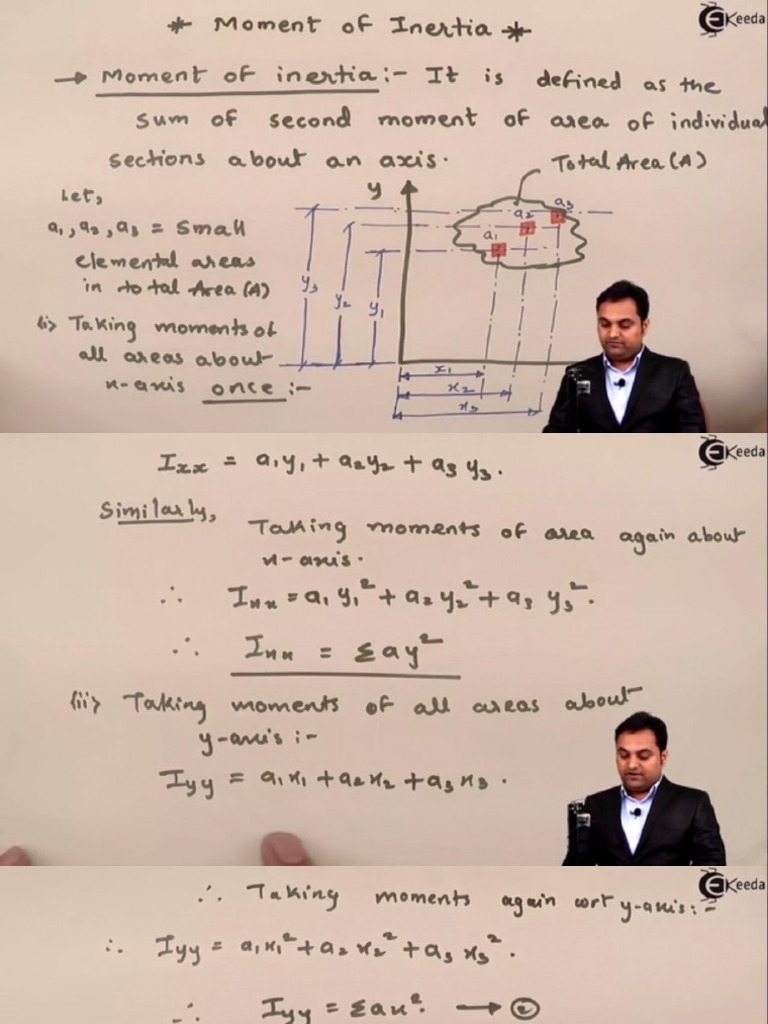 * Moment of Inertia *
EKeeda
→ Moment of inertia :- It is defined as the
sum of second moment of area of individual
sections about an axis.
Total Area (A)
Let,
a1, a2, a3 = small
elemental areas
in total Area (A)
(i) Taking moments of
all areas about
x-axis once :-
y
a1
a2
a3
y3
y2
y1
x1
x2
x3
EKeeda
Ixx = a1y1 + a2y2 + a3 y3.
Similarly,
Taking moments of area again about
x-axis.
∴ Ixx = a1 y1² + a2 y2² + a3 y3².
∴ Ixx = Σay²
(ii) Taking moments of all areas about
y-axis :-
Iyy = a1x1 + a2x2 + a3x3.
EKeeda
∴ Taking moments again wrt y-axis :-
∴ Iyy = a1x1² + a2 x2² + a3 x3².
∴ Iyy = Σax². → ②